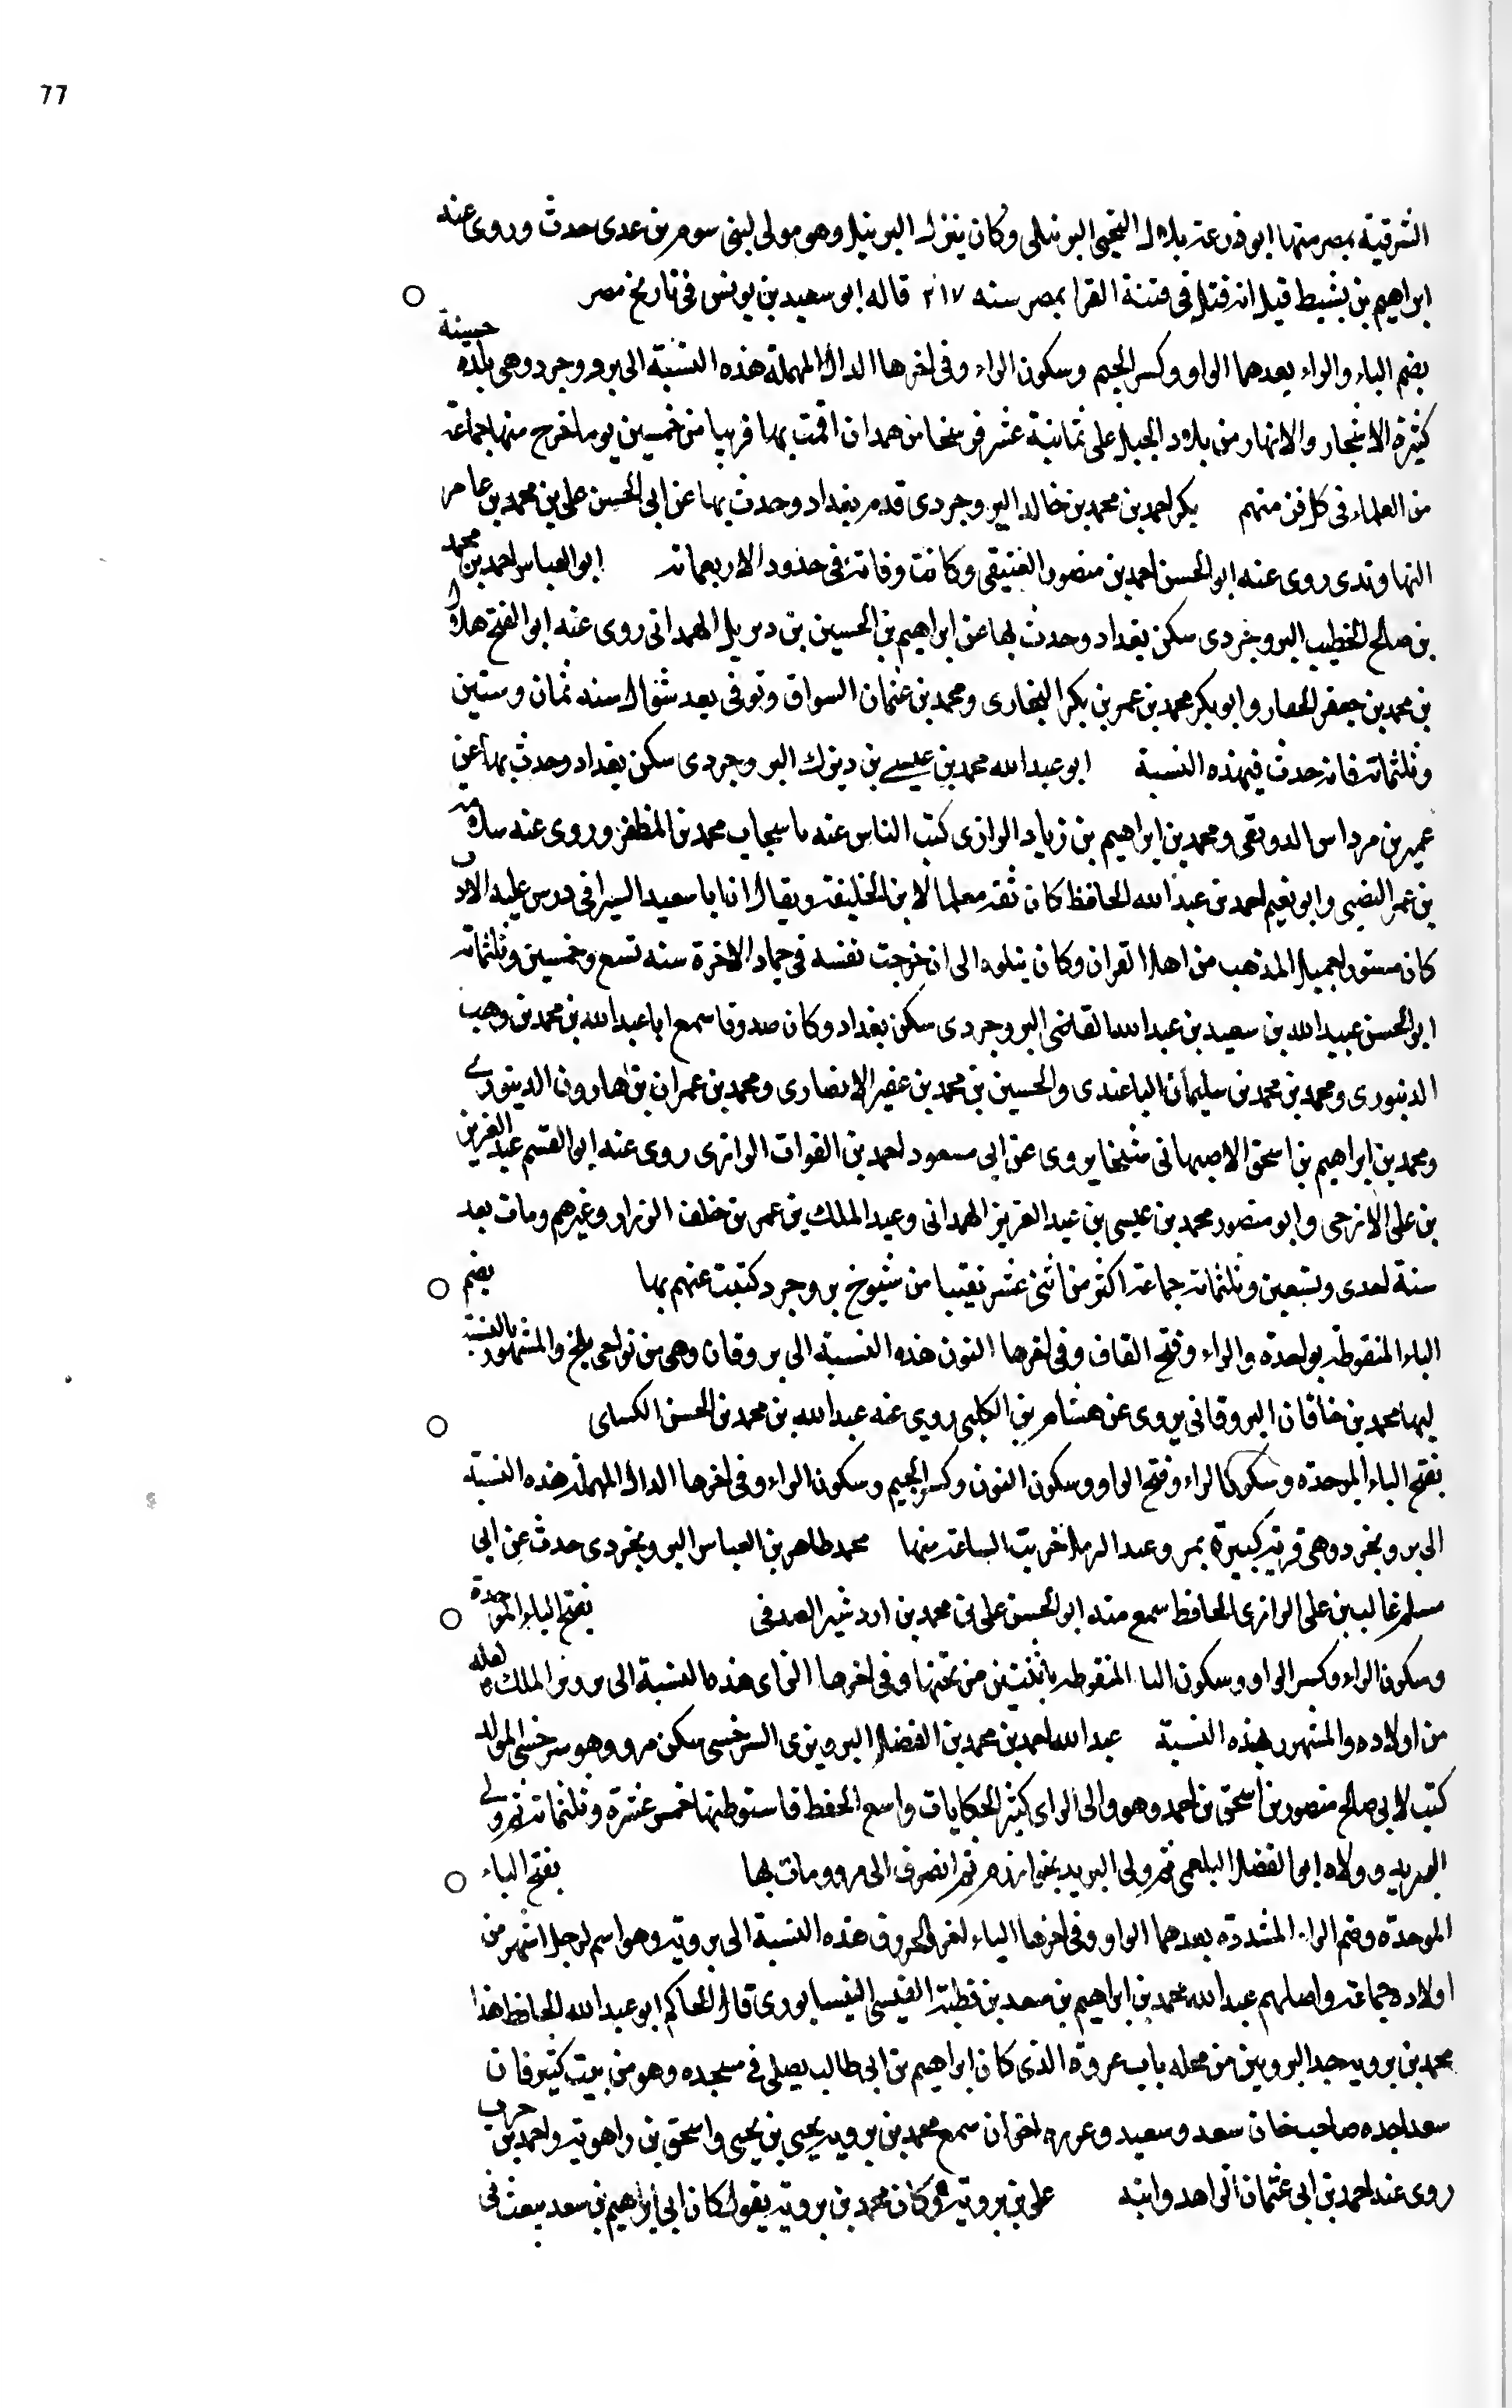 77
الشرقية بمصر منها ابو زرعة بلال التجيبى البرنيلى وكان ينزل البرنيل وهو مولى لبنى سوم بن عدى حدث وروى عنه
ابراهيم بن نشيط قيل انه قتل فى فتنة القرا بمصر سنه ٢١٧ قاله ابو سعيد بن يونس فى تاريخ مصر
بضم الباء والراء بعدهما الواو وكسر الجيم وسكون الراء وفى اخرها الدال المهملة هذه النسبة الى بروجرد وهى بلدة حسنة
كثيرة الاشجار والانهار من بلاد الجبل على ثمانية عشر فرسخا من همدان اقمت بها قريبا من خمسين يوما خرج منها جماعة
من العلماء فى كل فن منهم بكر احمد بن محمد بن خالد البروجردى قدم بغداد وحدث بها عن ابى الحسن على بن محمد بن عامر
النهاوندى روى عنه ابو الحسن احمد بن منصور العتيقى وكانت وفاته فى حدود الاربعمائة ابو العباس احمد بن محمد
بن صالح الخطيب البروجردى سكن بغداد وحدث بها عن ابراهيم بن الحسين بن ديزيل الهمدانى روى عنه ابو الفتح هلال
بن محمد بن جعفر الحفار وابو بكر محمد بن عمر بن بكر النجارى ومحمد بن عثمان السواق وتوفى بعد شوال سنه ثمان وستين
وثلثمائة فانه حدث فيهذه النسبة ابو عبد الله محمد بن عيسى بن ديزك البروجردى سكن بغداد وحدث بها عن
عمير بن مرداس الدونقى ومحمد بن ابراهيم بن زياد الرازى كتب الناس عنه محمد بن المظفر وروى عنه سلامة
بن عمر النصيبى وابو نعيم احمد بن عبد الله الحافظ كان ثقة معلما لابن الخليفة ويقال ان ابا سعيد السيرافى درس عليه الادب
كان مستورا جميل المذهب من اهل القران وكان يتلوه الى ان خرجت نفسه فى جماد الاخرة سنه تسع وخمسين وثلثمائة
ابو الحسن عبيد الله بن سعيد بن عبد الله القاضى البروجردى سكن بغداد وكان صدوقا سمع ابا عبد الله بن محمد بن وهب
الدينورى ومحمد بن محمد بن سليمان الباغندى والحسين بن محمد بن عفير الانصارى ومحمد بن عمران بن هارون الدينورى
ومحمد بن ابراهيم بن اسحق الاصبهانى شيخا يروى عن ابى مسعود احمد بن الفرات الرازى روى عنه ابو القسم عبد العزيز
بن على الازجى وابو منصور محمد بن عيسى بن عبد العزيز الهمدانى وعبد الملك بن عمر بن خلف الرزاز وغيرهم ومات بعد
سنة احدى وتسعين وثلثمائة جماعة اكثر من اثنى عشر نقيبا من شيوخ بروجرد كتبت عنهم بها بضم
الباء المنقوطة بواحدة والراء وفتح القاف وفى اخرها النون هذه النسبة الى بروقان وهى من نواحى بلخ والمشهور بالنسبة
ليها محمد بن خاقان البروقانى يروى عن هشام بن الكلبى روى عنه عبد الله بن محمد بن الحسن الكساى
بفتح الباء الموحدة وسكون الراء وفتح الواو وسكون النون وكسر الجيم وسكون الراء وفى اخرها الدال المهملة هذه النسبة
الى برونجرد وهى قرية كبيرة بمرو عند الرمل خربت الساعة منها محمد طاهر بن العباس البرونجردى حدث عن ابى
مسلم غالب بن على الرازى الحافظ سمع منه ابو الحسن على بن محمد بن اردشير الصدفى بفتح الباء الموحدة
وسكون الراء وكسر الواو وسكون اليا المنقوطة باثنتين من تحتها وفى اخرها الزاى هذه النسبة الى برويز الملك لعله
من اولاده والمشهور بهذه النسبة عبد الله احمد بن محمد بن الفضل البرويزى السرخسى سكن مرو وهو سرخسى المولد
كتب لابى صالح منصور بن اسحق بن احمد وهو والى الراى كثير الحكايات واسع الحفظ فاستوطنها خمس عشرة وثلثمائة ثم ولى
البريد وولاه ابو الفضل البلعمى ثم ولى البريد بخوارزم ثم انصرف الى مرو ومات بها بفتح الباء
الموحدة وضم الراء المشددة بعدهما الواو وفى اخرها الياء اخر الحروف هذه النسبة الى بروية وهو اسم لرجل اشتهر من
اولاده جماعة واصلهم عبد الله محمد بن ابراهيم بن سعد بن قطبة القيسى النيسابورى قال الحاكم ابو عبد الله الحافظ هذا
محمد بن بروية جد البرويين من محله باب عروة الذى كان ابراهيم بن ابى طالب يصلى فى مسجده وهو من بيت كثير فان
سعد اجده صاحب خان سعد وسعيد وعروه اخوان سمع محمد بن بروية يحيى بن يحيى واسحق بن راهوية واحمد بن حرب
روى عنه احمد بن ابى عثمان الزاهد وابنه على بن بروية وكان محمد بن بروية يقول كان ابى ابراهيم بن سعد يبعث فى